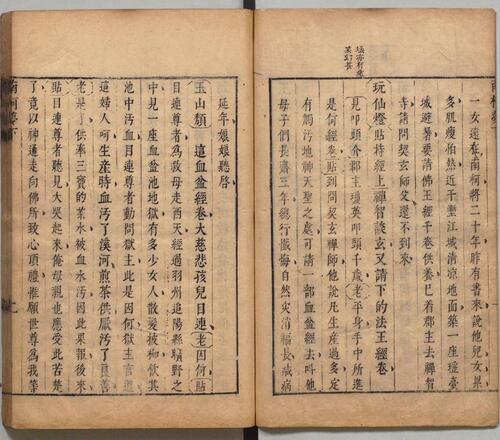 一女遠在南柯將二十年昨有書來說他兒女累
多肌瘦怕熱近于壍江城清凉地面築一座瑤臺
城避暑要請佛王經千卷供養巳着郡主去禪智
寺請問契玄師父還不到來
玩仙燈貼持經上禪智談玄又請下的法王經卷
見叩頭介郡主瓊英叩頭千歲老平身手中所進
是何經卷貼到問契玄禪師他說凡生產過多定
有觸汚地神天星之處可請一部血盆經去叫他
母子們長齋三年總行懺悔自然灾消福長疾病
延年娘娘聽啓
玉山頹 這血盆經卷大慈悲孩兒目連老因何貼
目連尊者爲救母走西天經過羽州追陽縣曠野之
中見一座血盆池地獄有多少女人散髮披枷飲其
池中汚血目連尊者動問獄主此是因何獄主言道
這婦人呵生產時血汚了溪河煎茶供厭汚了良善
老是了供奉三寶的茶水被血水汚因此果報後來
貼目連尊者聽見大哭起來俺母親也應受此苦楚
了竟以神通走向佛所致心頂禮雅願世尊爲我等
南柯夢下